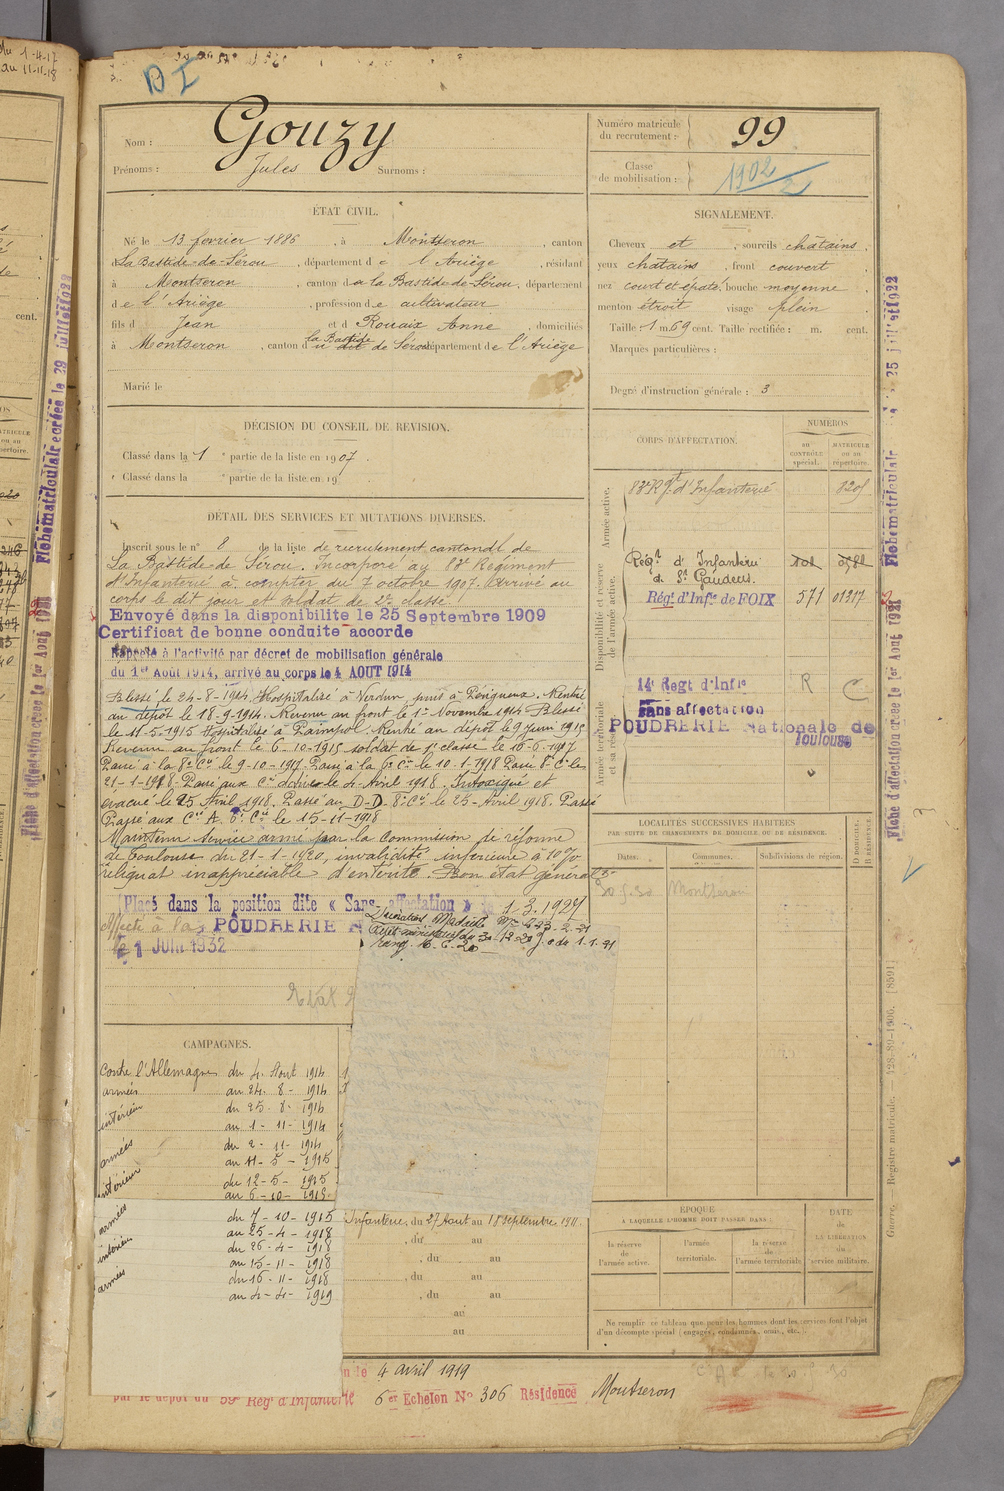 du 1-4-17
au 11-11-18
D I
Nom : Gouzy
Prénoms : Jules Surnoms :
Numéro matricule du recrutement : 99
Classe de mobilisation : 1902/2
ÉTAT CIVIL.
Né le 13 fevrier 1886, à Montseron, canton
La Bastide-de-Sérou, département de l'Ariège, résidant
à Montseron, canton de la Bastide-de-Sérou, département
de l'Ariège, profession de cultivateur
fils d Jean et d Rouaix Anne, domiciliés
à Montseron, canton d la Bastide de Sérou département de l'Ariège
Marié le
SIGNALEMENT.
Cheveux et, sourcils châtains.
yeux chatains, front couvert
nez court et épaté, bouche moyenne
menton étroit visage plein
Taille : 1 m. 69 cent. Taille rectifiée : m. cent.
Marques particulières :
Degré d'instruction générale : 3
DÉCISION DU CONSEIL DE REVISION.
Classé dans la 1 e partie de la liste en 1907.
Classé dans la e partie de la liste en 19
CORPS D'AFFECTATION.
NUMÉROS
AU CONTRÔLE spécial.
MATRICULE ou au répertoire.
Armée active.
83e Rgt d'Infanterie 8205
Disponibilité et réserve de l'armée active.
Régt d'Infanterie de St Gaudens
Régt d'Infie de FOIX 571 01217
Armée territoriale et sa réserve
14e Regt d'Infie R C
Sans affectation
POUDRERIE Nationale de Toulouse
DÉTAIL DES SERVICES ET MUTATIONS DIVERSES.
Inscrit sous le n° 8 de la liste de recrutement cantonal de
La Bastide-de Sérou. Incorporé au 83e Régiment
d'Infanterie à compter du 7 octobre 1907. Arrivé au
corps le dit jour et soldat de 2e classe.
Envoyé dans la disponibilité le 25 Septembre 1909
Certificat de bonne conduite accordé
Rappelé à l'activité par décret de mobilisation générale
du 1er Août 1914, arrivé au corps le 4 AOUT 1914
Blessé le 24-8-1914. Hospitalisé à Verdun, puis à Périgueux. Rentré
au dépôt le 18-9-1914. Revenu au front le 1er Novembre 1914 Blessé
le 11-5-1915 Hospitalisé à Paimpol. Rentré au dépôt le 9 juin 1915
Revenu au front le 6-10-1915 soldat de 1e classe le 16-6-1917
Passé à la 8e Cie le 9-10-1917. Passé à la 5e Cie le 10-1-1918 Passé 8e Cie le
21-1-1918. Passé aux Cies le 4 Avril 1918. Intoxiqué et
évacué le 25 Avril 1918. Passé au D-D. 8e Cie le 25-Avril 1918. Passé
Passé aux Cies A. 6e Cie le 15-11-1918
Maintenu Service armé par la Commission de réforme
de Toulouse du 21-1-1920, invalidité inférieure à 10 %
reliquat inappréciable d'entérite. Bon état général
Placé dans la position dite « Sans affectation » le 1-3-1927
Affecté à la POUDRERIE N
le 1 JUIN 1932
Etat
LOCALITÉS SUCCESSIVES HABITÉES
PAR SUITE DE CHANGEMENTS DE DOMICILE OU DE RÉSIDENCE.
Dates. Communes. Subdivisions de région. D DOMICILE. R RÉSIDENCE.
30 5.30 Montseron
CAMPAGNES.
Contre l'Allemagne du 4. Aout 1914
armées au 24. 8 - 1914
intérieur du 25. 8 - 1914
au 1 - 11 - 1914
armées du 2 - 11 - 1914
au 11 - 5 - 1915
intérieur du 12 - 5 - 1915
au 6 - 10 - 1915
armées du 7 - 10 - 1915
au 25 - 4 - 1918
intérieur du 26 - 4 - 1918
au 15 - 11 - 1918
armées du 16 - 11 - 1918
au 4 - 4 - 1919
Infanterie, du 27 Aout au 18 septembre 1911.
, du au
, du au
, du au
, du au
au
au
ÉPOQUE
À LAQUELLE L'HOMME DOIT PASSER DANS :
la réserve de l'armée active.
l'armée territoriale.
la réserve de l'armée territoriale
DATE de LA LIBÉRATION du service militaire.
Ne remplir ce tableau que pour les hommes dont les services font l'objet
d'un décompte spécial (engagés, condamnés, omis, etc.).
le 4 avril 1919
par le dépôt du 59e Régt d'Infanterie 6er Echelon N° 306 Résidence Montseron
Guerre. — Registre matricule. — 128-89-1906. [8591]
Fiche matriculaire créée le 29 juillet 1922
Fiche d'affectation créée le 1er Août 1921
Fiche matriculaire le 25 juillet 1922
Fiche d'affectation créée le 1er Août 1921